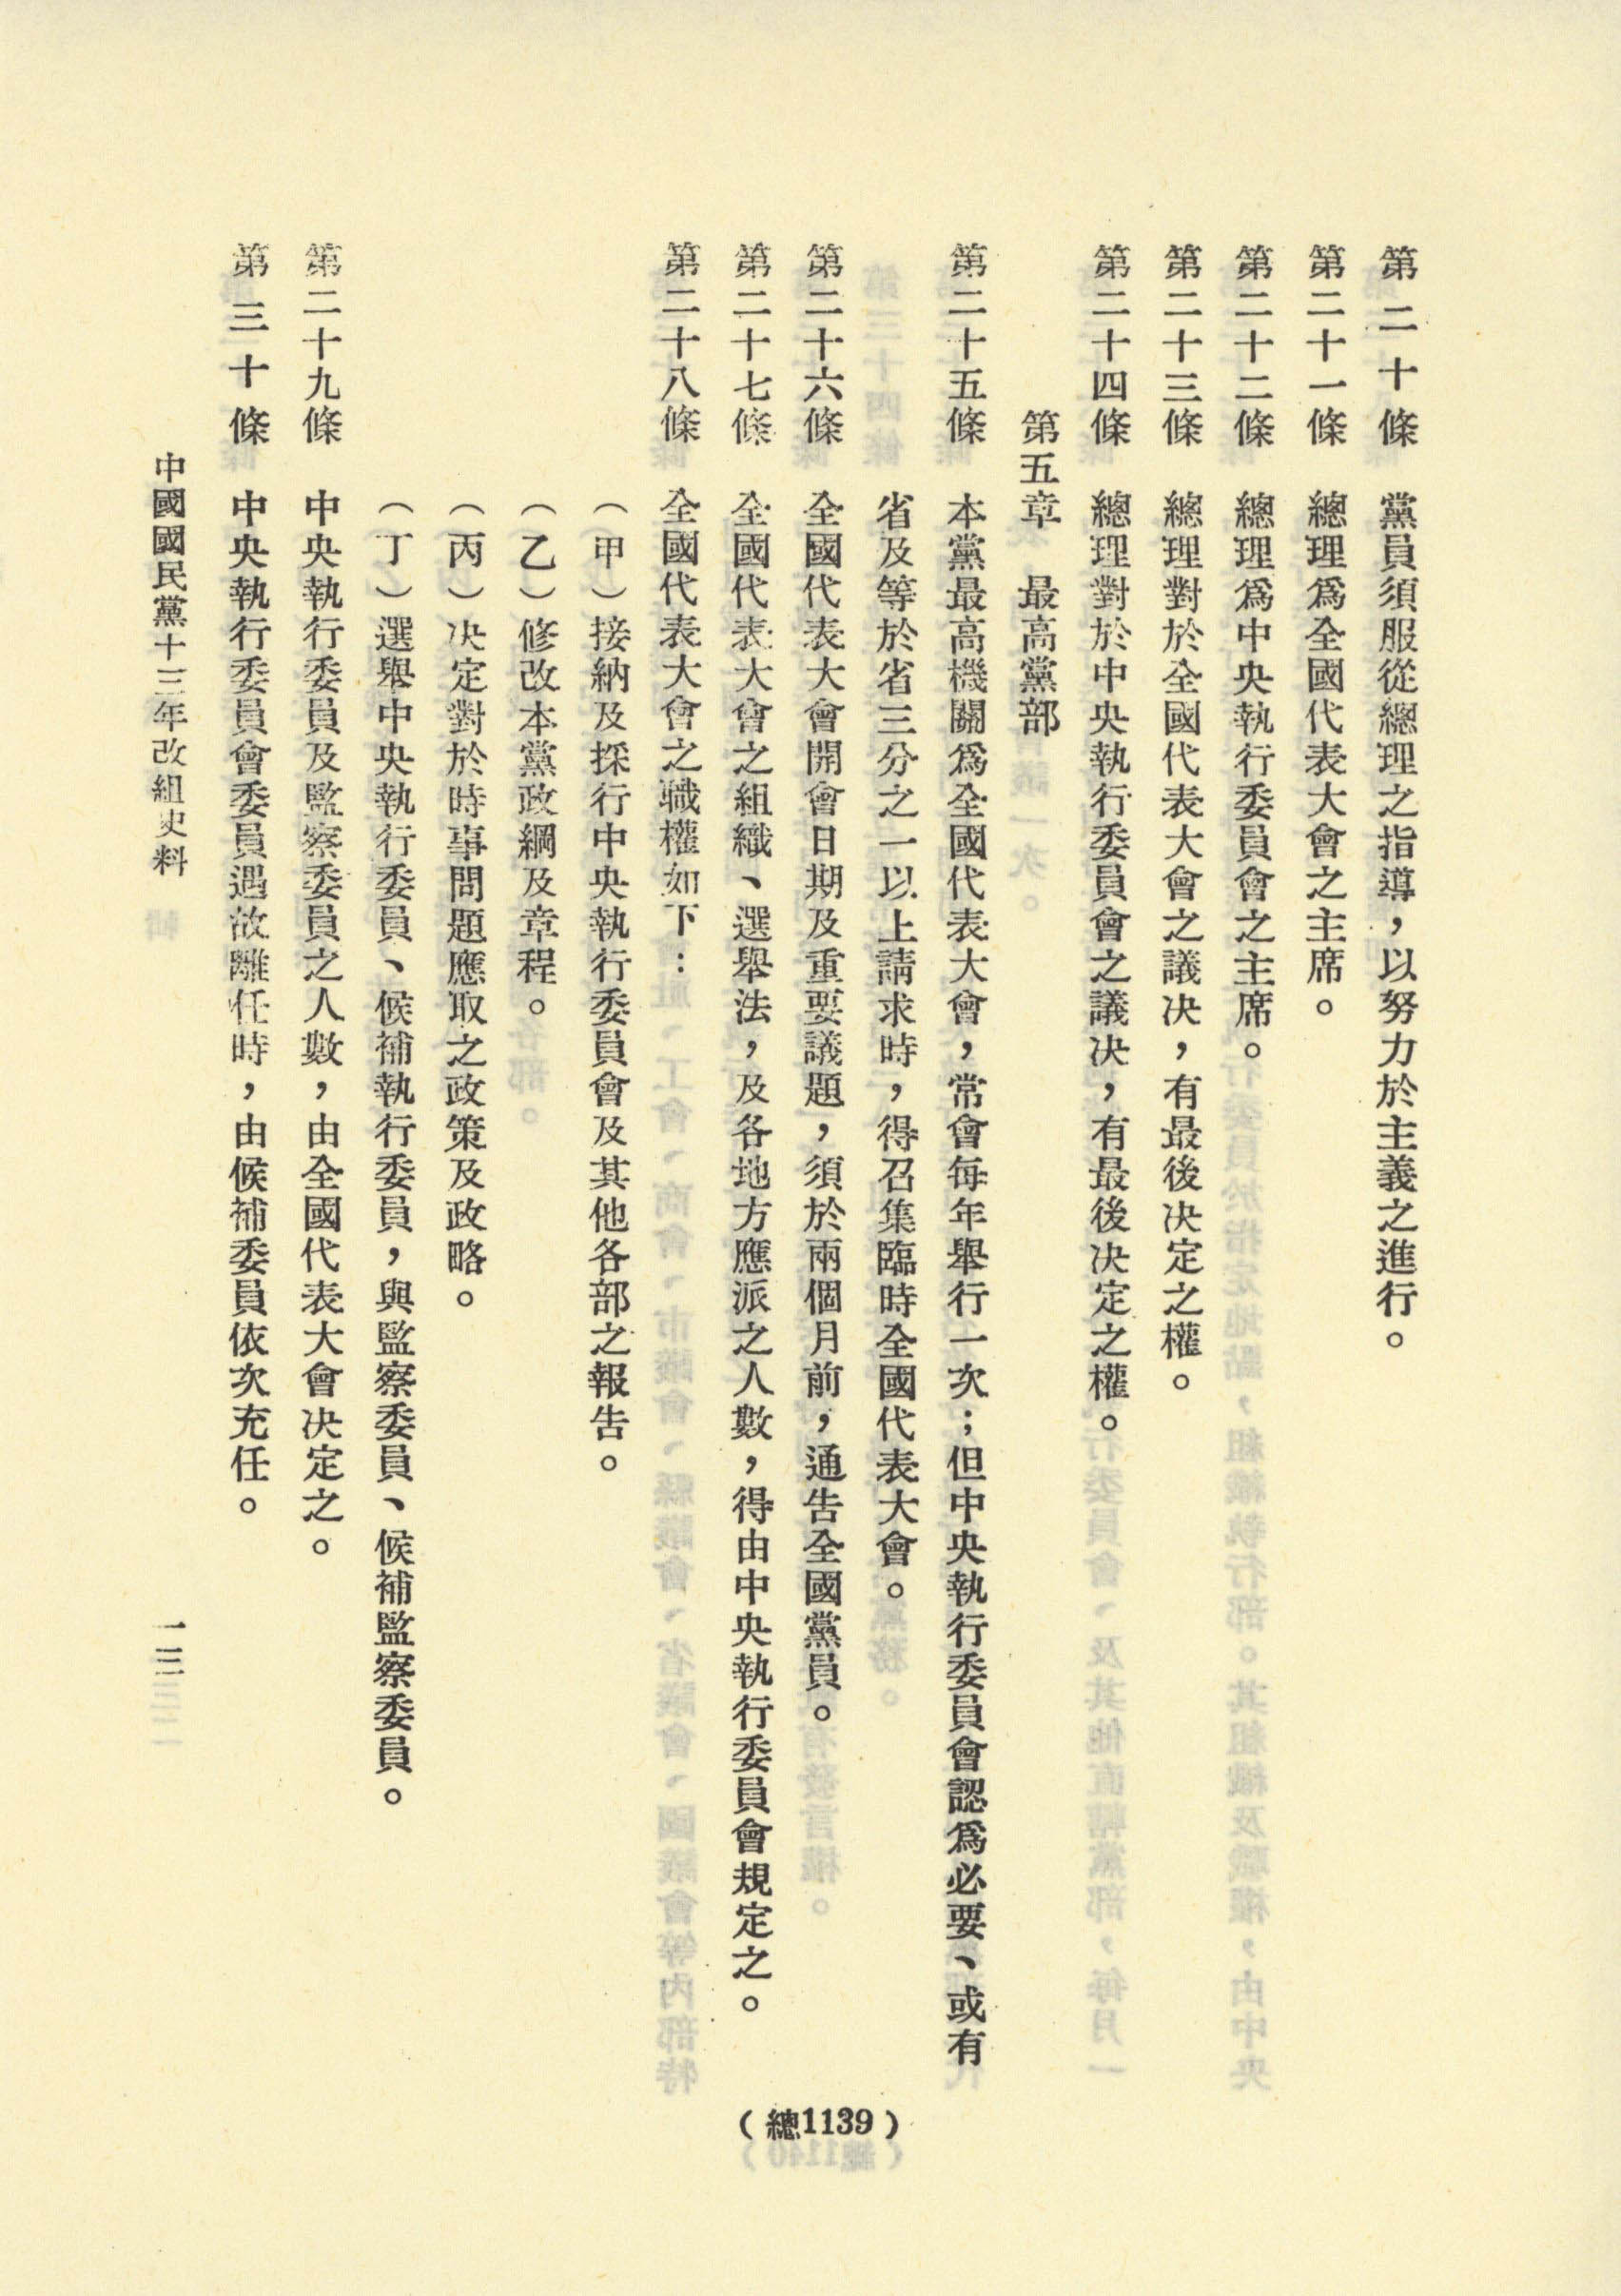 第二十條　黨員須服從總理之指導，以努力於主義之進行。
第二十一條　總理爲全國代表大會之主席。
第二十二條　總理爲中央執行委員會之主席。
第二十三條　總理對於全國代表大會之議決，有最後決定之權。
第二十四條　總理對於中央執行委員會之議決，有最後決定之權。
第五章　最高黨部
第二十五條　本黨最高機關爲全國代表大會，常會每年舉行一次；但中央執行委員會認爲必要、或有
省及等於省三分之一以上請求時，得召集臨時全國代表大會。
第二十六條　全國代表大會開會日期及重要議題，須於兩個月前，通告全國黨員。
第二十七條　全國代表大會之組織、選舉法，及各地方應派之人數，得由中央執行委員會規定之。
第二十八條　全國代表大會之職權如下：
（甲）接納及採行中央執行委員會及其他各部之報告。
（乙）修改本黨政綱及章程。
（丙）決定對於時事問題應取之政策及政略。
（丁）選舉中央執行委員、候補執行委員，與監察委員、候補監察委員。
第二十九條　中央執行委員及監察委員之人數，由全國代表大會決定之。
第三十條　中央執行委員會委員遇故離任時，由候補委員依次充任。
中國國民黨十三年改組史料
（總1139）